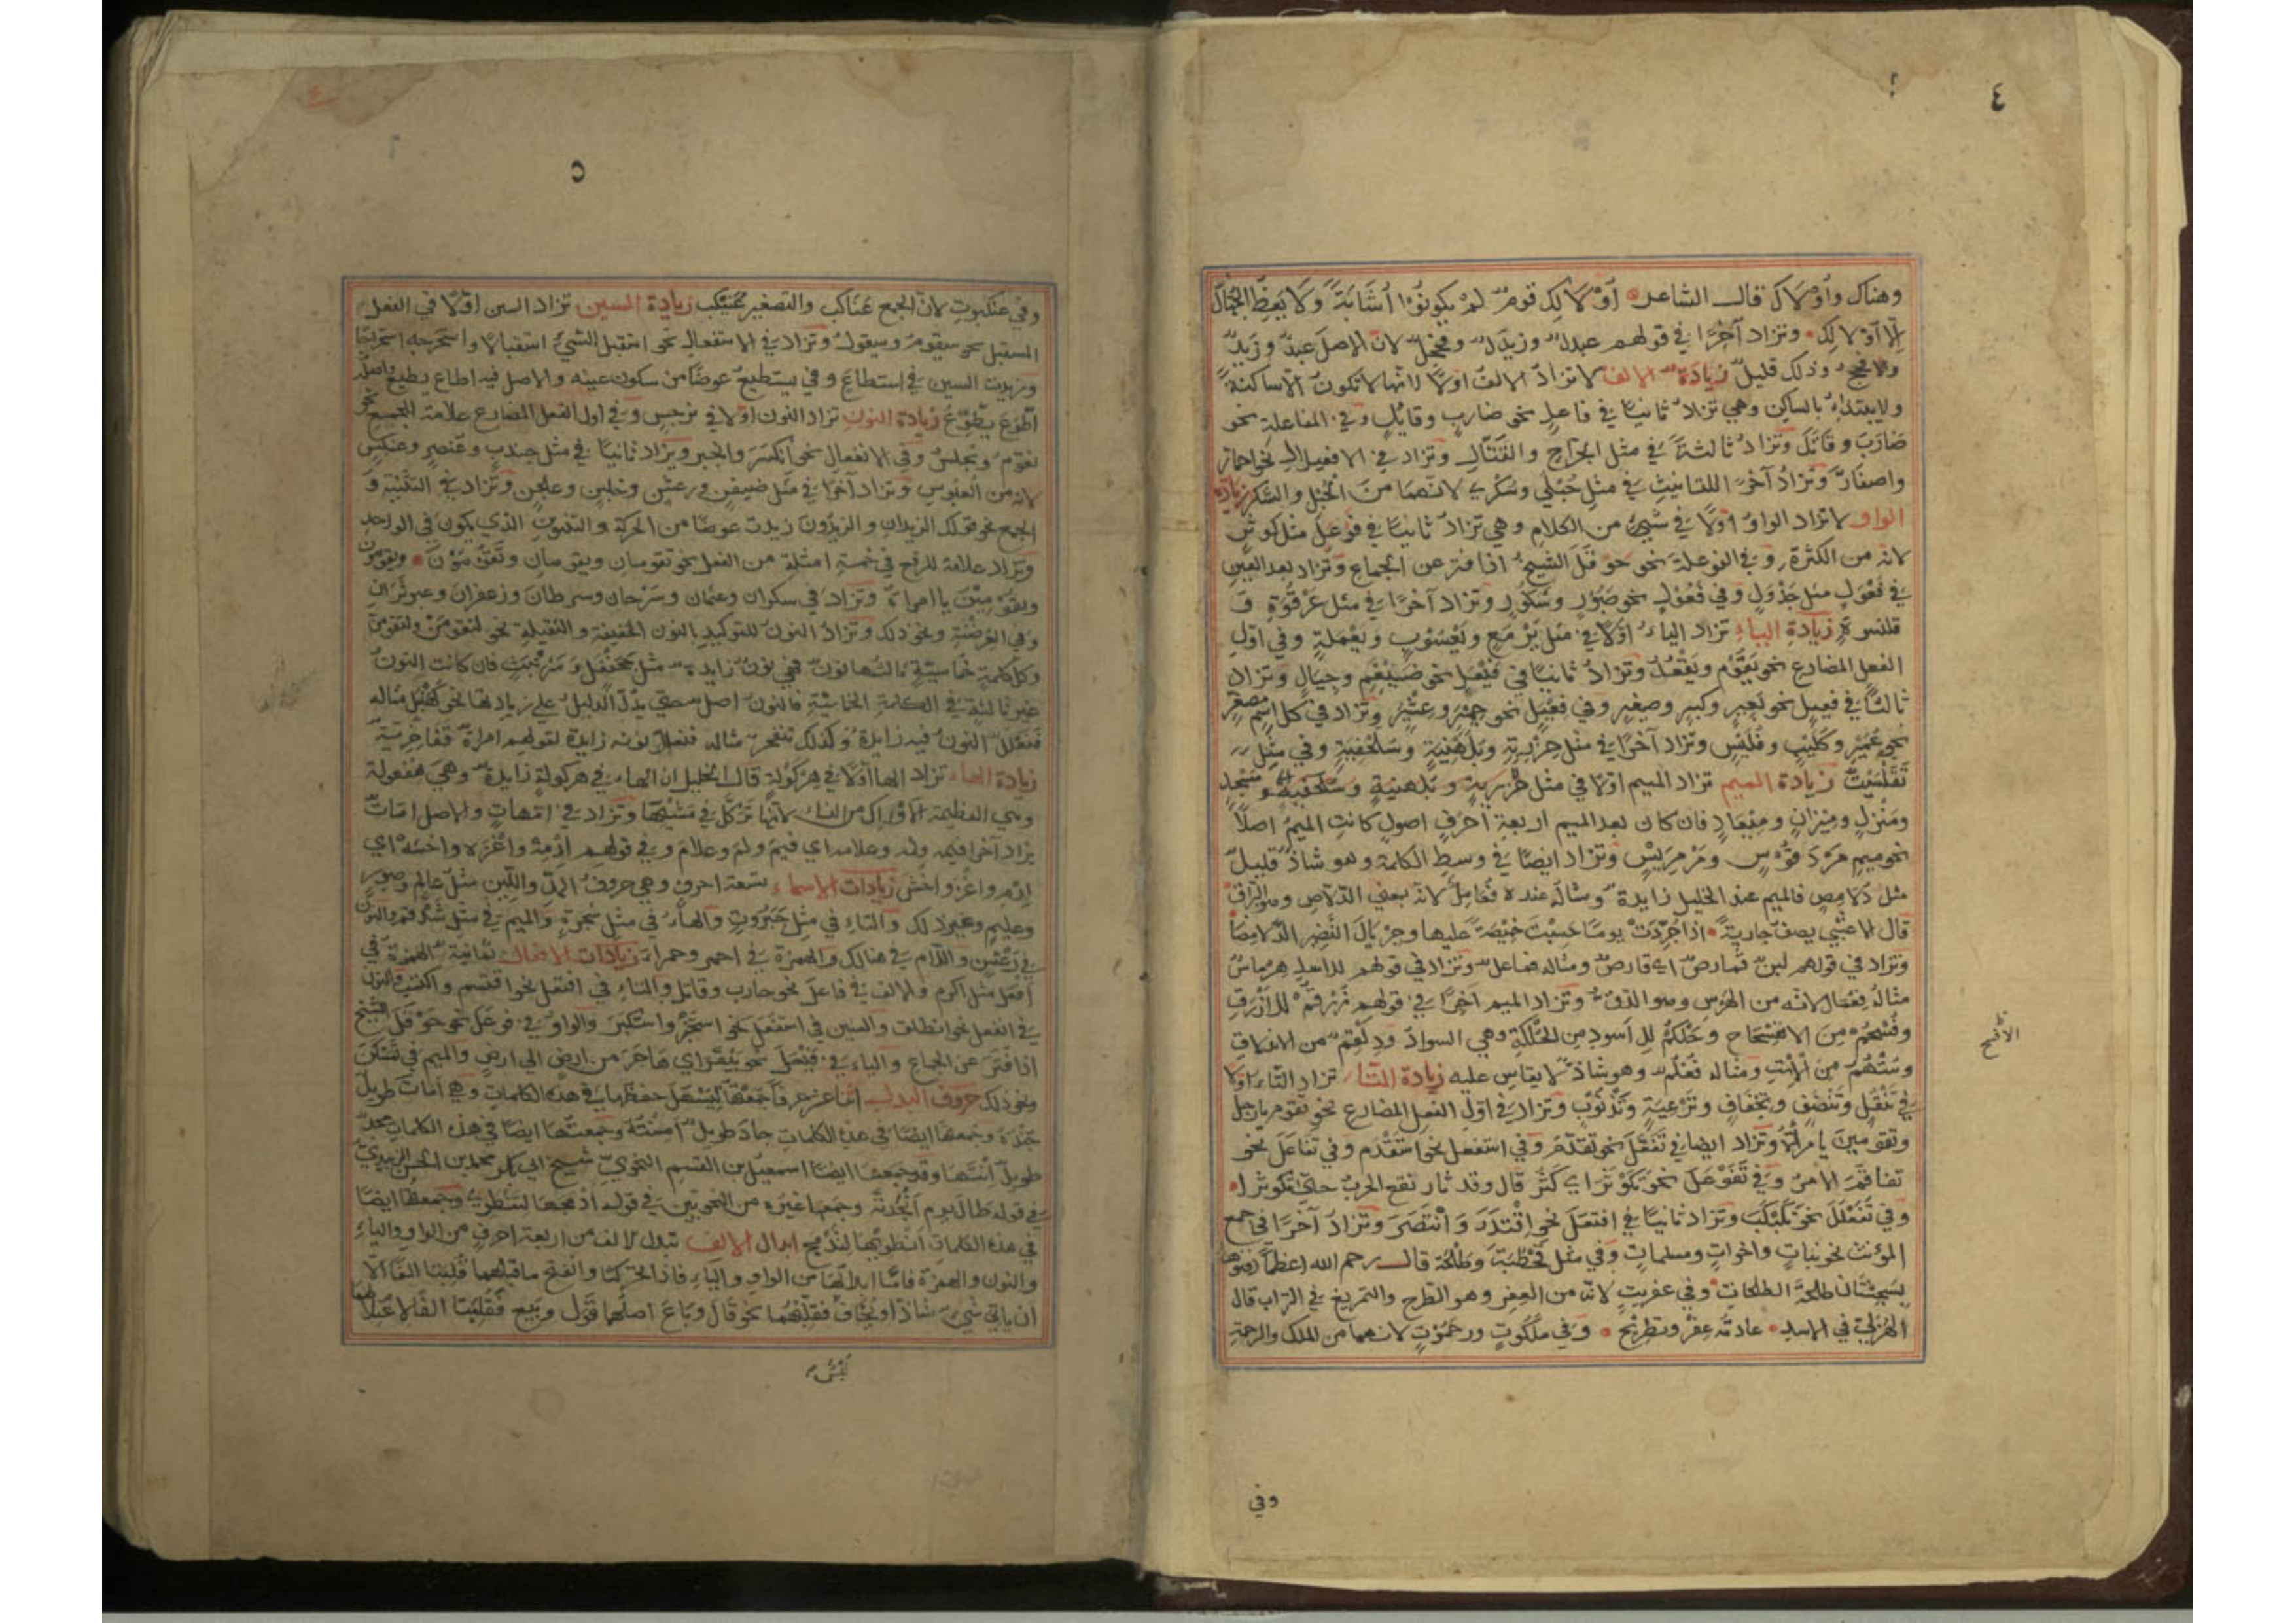 ٤
وهناك وأولاك قال الشاعر أولالك قوم لم يكونوا أشابة ولا يعظ الضلال
إلا أولالك وتزاد آخرا في قولهم عبدل وزيدل وفحجل لان الاصل عبد وزيد
والافحج وذلك قليل زيادة الالف لا تزاد الالف اولا لانها لا تكون الا ساكنة
ولا يبتدأ بالساكن وهي تزاد ثانيا في فاعل نحو ضارب وقاتل وفي المفاعلة نحو
ضارب وقاتل وتزاد ثالثة في مثل الجراح والقتال وتزاد في الافعيلال نحو احمار
واصفار وتزاد آخرا للتانيث في مثل حبلى وسكرى لانهما من الحبل والسكر زيادة
الواو لا تزاد الواو اولا في شيء من الكلام وهي تزاد ثانيا في فوعل مثل كوثر
لانه من الكثرة وفي الفوعلة نحو حوقل الشيخ اذا فتر عن الجماع وتزاد بعد العين
في فعول مثل جدول وفي فعول نحو صبور وشكور وتزاد آخرا في مثل عرقوة و
قلنسوة زيادة الياء تزاد الياء اولا في مثل يرمع ويعسوب ويعملة وفي اول
الفعل المضارع نحو يقوم ويفعل وتزاد ثانيا في فيعل نحو ضيغم وجيال وتزاد
ثالثا في فعيل نحو بعير وكبير وصغير وفي فعيل نحو حمير وعثير وتزاد في كل اسم مصغر
نحو عمير وكليب وفليس وتزاد آخرا في مثل حزبية وبلهنية وسلحفية وفي مثل
تقلسيت زيادة الميم تزاد الميم اولا في مثل وبلهنية وسلحفية ومسجد
ومنزل وميزان وميعاد فان كان بعد الميم اربعة احرف اصول كانت الميم اصلا
نحو ميم مردقوس ومرمريس وتزاد ايضا في وسط الكلمة وهو شاذ قليل
مثل دلامص فالميم عند الخليل زايدة ومثاله عنده فعامل لانه بمعنى الدلاص وهو البراق
قال الاعشى يصف جارية اذا جردت يوما حسبت خميصة عليها وجريال النضير الدلامصا
وتزاد في قولهم لبن قمارص اي قارص ومثاله فماعل وتزاد في قولهم للاسد هرماس
مثاله فعمال لانه من الهرس وهو الدق وتزاد الميم آخرا في قولهم زرقم للازرق
وفسحم من الانفساح وحلكم للاسود من الحلكة وهي السواد ودلقم من الاندلاق
وستهم من الاست ومثاله فعلم وهو شاذ لا يقاس عليه زيادة التاء تزاد التاء اولا
في تنقل وتنضب وتجفاف وترعية وتذنوب وتزاد في اول الفعل المضارع نحو تقوم يا رجل
وتقومين يا مراة وتزاد ايضا في تفعل نحو تقدم وفي استفعل نحو استقدم وفي تفاعل نحو
تفاقم الامر وفي تفوعل نحو تكوثر اي كثر قال وقد ثار نقع الحرب حتى تكوثرا
وفي تفعلل نحو تكبكب وتزاد ثانيا في افتعل نحو اقتدر وانتصر وتزاد آخرا في جمع
المؤنث نحو بنات واخوات ومسلمات وفي مثل قحطبة وطلحة قال رحم الله اعظما دفنوها
بسجستان طلحة الطلحات وفي عفريت لانه من العفر وهو الطرح والتمريغ في التراب قال
الهذلي في الاسد عادته عفر وتطريح وفي ملكوت ورحموت لانهما من الملك والرحمة
الافسح
وفي
٥
وفي عنكبوت لان الجمع عناكب والتصغير عنيكب زيادة السين تزاد السين اولا في الفعل
المستقبل نحو سيقوم وسيقول وتزاد في الاستفعال نحو استقبل الشيء استقبالا واستخرجه استخراجا
وزيدت السين في استطاع وفي يستطيع عوضا من سكون عينه والاصل فيه اطاع يطيع واصله
اطوع يطوع زيادة النون تزاد النون اولا في نرجس وفي اول الفعل المضارع علامة للجميع نحو
نقوم ونجلس وفي الانفعال نحو انكسر وانجبر ويزاد ثانيا في مثل جندب وعنصر وعنبس
لانه من العبوس وتزاد آخرا في مثل ضيفن ورعشن وخلبن وعلجن وتزاد في التثنية و
الجمع نحو قولك الزيدان والزيدون زيدت عوضا من الحركة والتنوين الذي يكون في الواحد
وتزاد علامة للرفع في خمسة امثلة من الفعل نحو تقومان ويقومان وتقومون ويقومون
وتقومين يا امراة وتزاد في سكران وعثمان وسرحان وسرطان وزعفران وعبوثران
وفي العرضنة ونحو ذلك وتزاد النون للتوكيد بالنون الخفيفة والثقيلة نحو لتقومن ولتقومن
وكل كلمة خماسية ثالثها نون فهي نون زايدة مثل جحنفل وشرنبث فان كانت النون
غير ثالثة في الكلمة الخماسية فالنون اصل حتى يدل الدليل على زيادتها نحو كنهبل مثاله
فنعلل النون فيه زايدة وكذلك تنفخر مثاله فنعلل نونه زايدة لقولهم امراة قفاخرية
زيادة الهاء تزاد الهاء اولا في هركولة قال الخليل ان الهاء في هركولة زايدة وهي هفعولة
وهي العظيمة الاوراك من النساء لانها تركل في مشيتها وتزاد في امهات والاصل امات
يزاد آخرا فيمه ولمه وعلامه اي فيم ولم وعلام وفي قولهم ارمه واغزه واخشه اي
ارم واغز واخش زيادات الاسماء تسعة احرف وهي حروف المد واللين مثل عالم وصبور
وعليم وغير ذلك والتاء في مثل جبروت والهاء في مثل شجرة والميم في مثل شدقم والنون
في رعشن واللام في هنالك والهمزة في احمر وحمراء زيادات الافعال ثمانية الهمزة في
أفعل مثل اكرم والالف في فاعل نحو حارب وقاتل والتاء في افتعل نحو اقتسم واكتسب والنون
في انفعل نحو انطلق والسين في استفعل نحو استخبر واستكبر والواو في فوعل نحو حوقل الشيخ
اذا فتر عن الجماع والياء في فيعل نحو بيقر اي هاجر من ارض الى ارض والميم في تمسكن
ونحو ذلك حروف البدل اثنا عشر حرفا جمعتها ليسهل حفظها في هذه الكلمات وهي امات طويل
وجمعتها ايضا في هذه الكلمات جاد طويل امنته وجمعتها ايضا في هذه الكلمات مجد
طويل انتها وقد جمعها ايضا اسمعيل بن القسم النحوي شيخ ابي بكر محمد بن الحسن الزبيدي
في قوله طال يوم انجدته وجمعها غيره من النحويين في قوله وجمعتها ايضا
في هذه الكلمات ابدال الالف تبدل الالف من اربعة احرف من الواو والياء
والنون والهمزة فاما ابدالها من الواو والياء فاذا تحركتا وانفتح ما قبلهما قلبتا الفا الا
ان ياتي شيء شاذ او يخاف فقلبهما نحو قال وباع اصلهما قول وبيع فقلبتا الفا لاعتلالهما
لبس